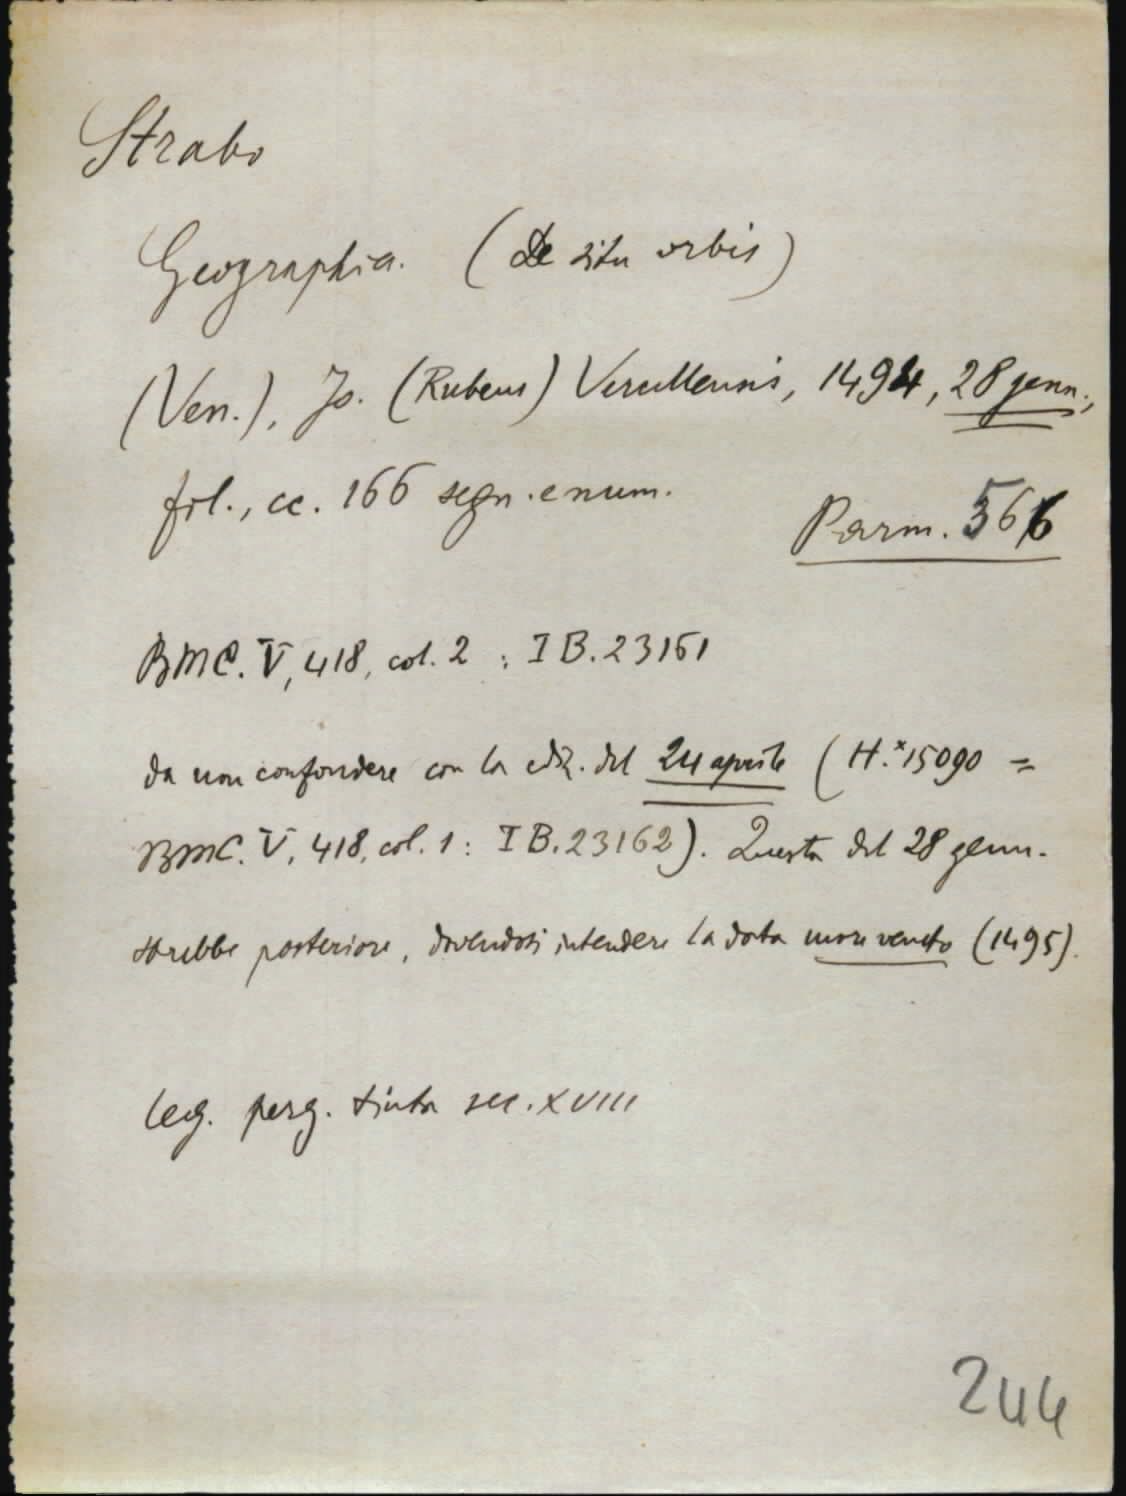 Strabo
Geographia. (De situ orbis)
(Ven.), Jo. (Rubeus) Vercellensis, 1494, 28 genn.,
fol., cc. 166 segn. e num.
Parm. 566
BMC. V, 418, col. 2 : IB. 23161
da non confondere con la ediz. del 24 aprile (H.* 15090 =
BMC. V, 418, col. 1 : IB. 23162). Questa del 28 genn.
sarebbe posteriore, dovendosi intendere la data more veneto (1495).
leg. perg. tinta sec. XVIII
244